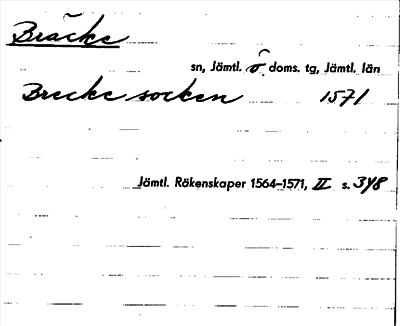 Bräcke
sn, Jämtl. ö. doms. tg, Jämtl. län
Brecke socken 1571
Jämtl. Räkenskaper 1564–1571, II s. 348